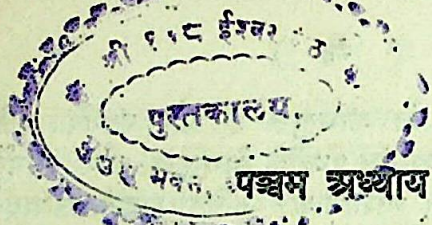 श्री ११८ ईश्वर
पुस्तकालय,
भवन,
पञ्चम अध्याय